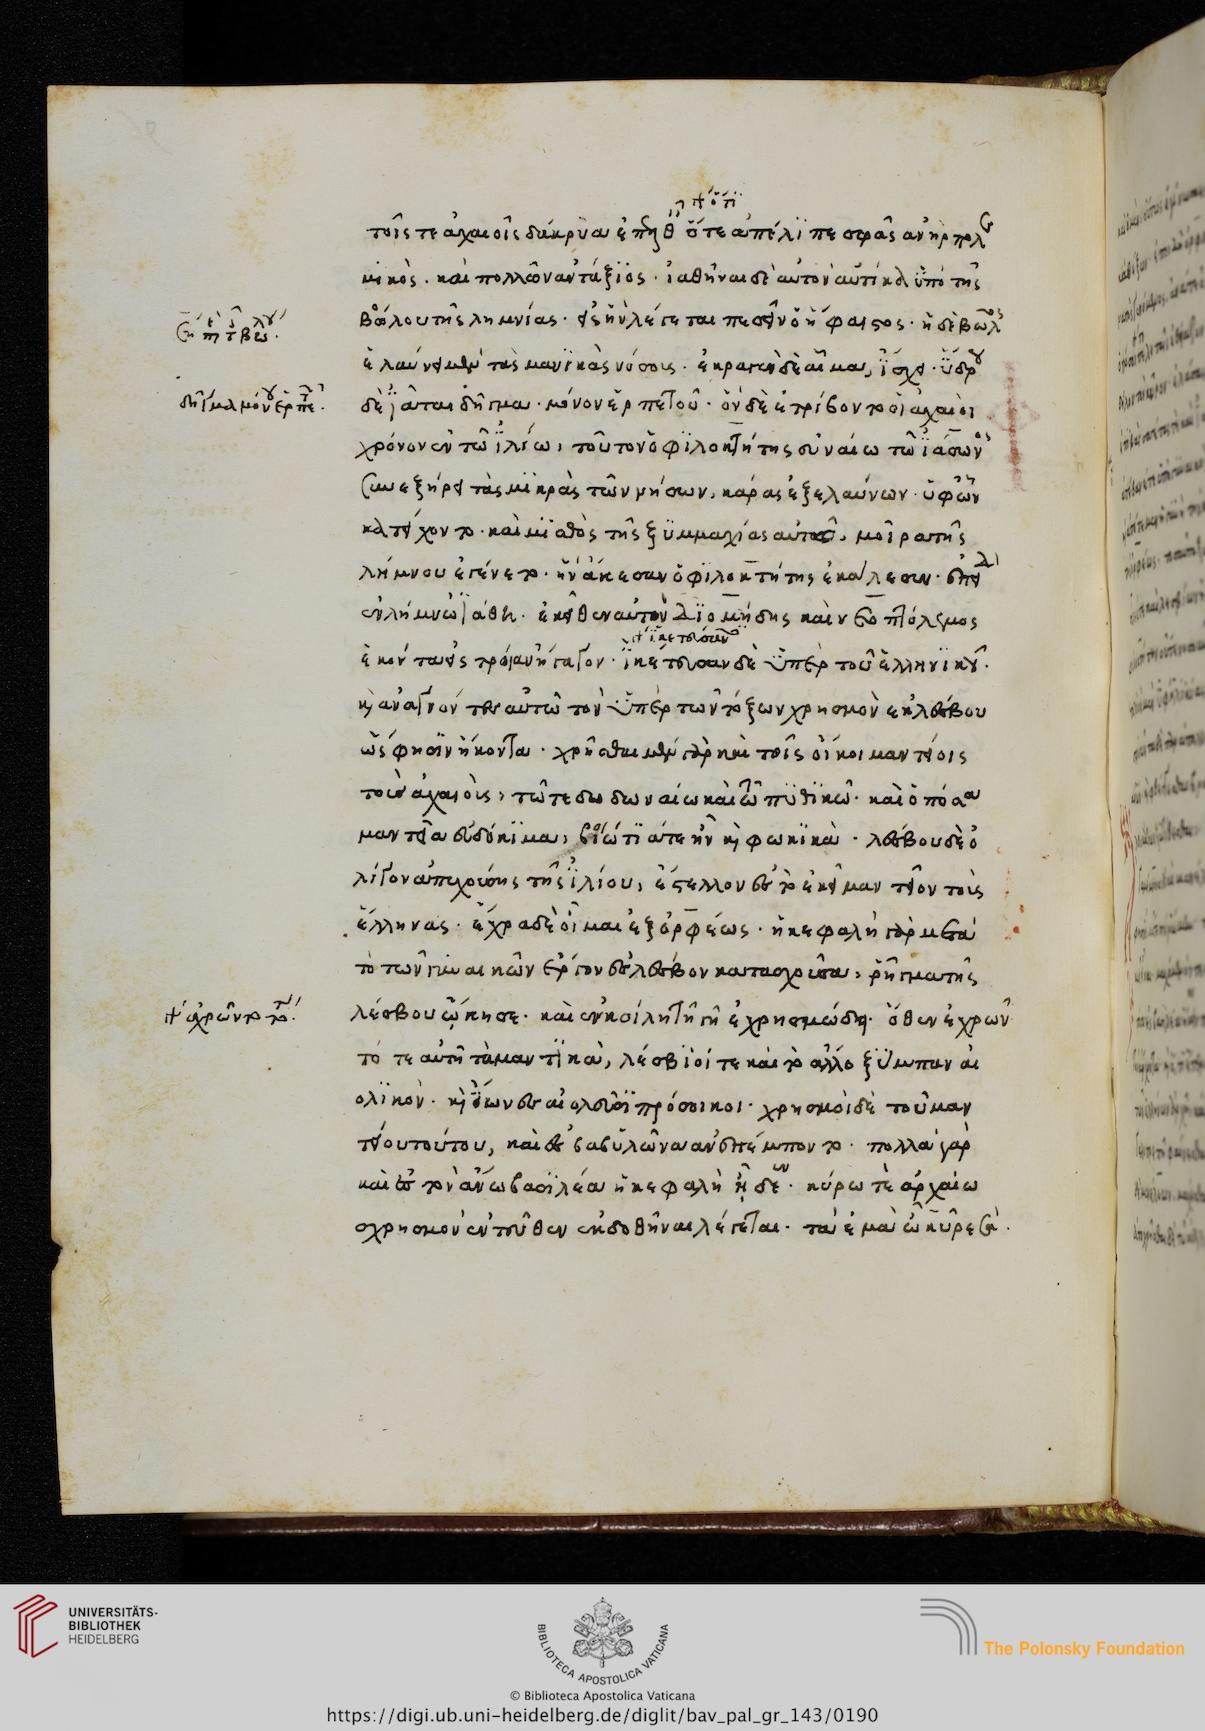 τοῖς τε ἀχαιοῖς δάκρυα ἐπῆλθ ὅτε ἀπέλιπε σφᾶς ἀνὴρ πολε
μικὸς. καὶ πολλῶν ἀντάξιος. ἰαθῆναι δὲ αὐτὸν αὐτίκα ὑπὸ τῆς
βώλου τῆς λημνίας. εἰς ἣν λέγεται πεσεῖν ὁ ἥφαιστος. ἡ δὲ βῶλος
ἐλαύνει μὲν τὰς μανικὰς νόσους. ἐκραγὲν δὲ αἷμα, ἴσχει. ὕδρου
δὲ ἰᾶται δῆγμα. μόνου ἑρπετοῦ. ὃν δὲ ἔτριβον το οἱ ἀχαιοι
χρόνον ἐν τῶ ἰλίω, τοῦτον ὁ φιλοκτήτης συναίω τῶ ἰάσωνος
συνεξήρει τὰς μικρὰς τῶν νήσων, κάρας ἐξελαύνων. ὑφ' ὧν
κατείχοντο. καὶ μισθὸς τῆς ξυμμαχίας αὐτοῖς, μοῖρα τῆς
λήμνου ἐγένετο. ἣν ἄκεσαν ὁ φιλοκτήτης ἐκάλεσεν. ἐπεὶ
ἐν λήμνω ἰάθη. ἐκεῖθεν αὐτὸν διομήδης καὶ νεοπτόλεμος
ἑκόντα εἰς τρόιαν ἤγαγον. ἱκέτευσαν δὲ ὑπὲρ τοῦ ἑλληνικοῦ.
καὶ ἀναγνόντες αὐτῶ τὸν ὑπὲρ τῶν τόξων χρησμὸν ἐκ λέσβου
ὥς φησιν ἥκοντα. χρῆσθαι μὲν γὰρ καὶ τοῖς οἴκοι μαντείοις
τοὺς ἀχαιοὺς, τῶ τε δωδωναίω καὶ τῶ πυθικῶ. καὶ ὁπόσα
μαντεῖα εὐδόκιμα, βοιώτιά τε ἦν καὶ φωκικὰ. λέσβου δὲ ὀ
λίγον ἀπεχούσης τῆς ἰλίου, ἔστελλον ἐς τὸ ἐκεῖ μαντεῖον τοὺς
ἕλληνας. ἔχρα δὲ οἶμαι ἐξ ὀρφέως. ἡ κεφαλὴ γὰρ μετὰ
τὸ τῶν γυναικῶν ἔργον ἐς λέσβον κατασχοῦσα, ῥῆγμα τῆς
λέσβου ᾤκησε. καὶ ἐν κοίλη τῆ γῆ ἐχρησμώδει. ὅθεν ἐχρῶν
τό τε αὐτῆ τὰ μαντικὰ, λέσβιοί τε καὶ τὸ ἄλλο ξύμπαν αἰ
ολικὸν. καὶ ἴωνες αἰολεῦσι πρόσοικοι. χρησμοὶ δὲ τοῦ μαν
τείου τούτου, καὶ ἐς βαβυλῶνα ἀνεπέμποντο. πολλὰ γὰρ
καὶ ἐς τὸν ἄνω βασιλέα ἡ κεφαλὴ ᾖδεν. κύρω τε ἀρχαίω
χρησμὸν ἐντεῦθεν ἐκδοθῆναι λέγεται. τὰ ἐμὰ ὦ κῦρε σὰ.
UNIVERSITÄTS-
BIBLIOTHEK
HEIDELBERG
BIBLIOTECA APOSTOLICA VATICANA
The Polonsky Foundation
© Biblioteca Apostolica Vaticana
https://digi.ub.uni-heidelberg.de/diglit/bav_pal_gr_143/0190